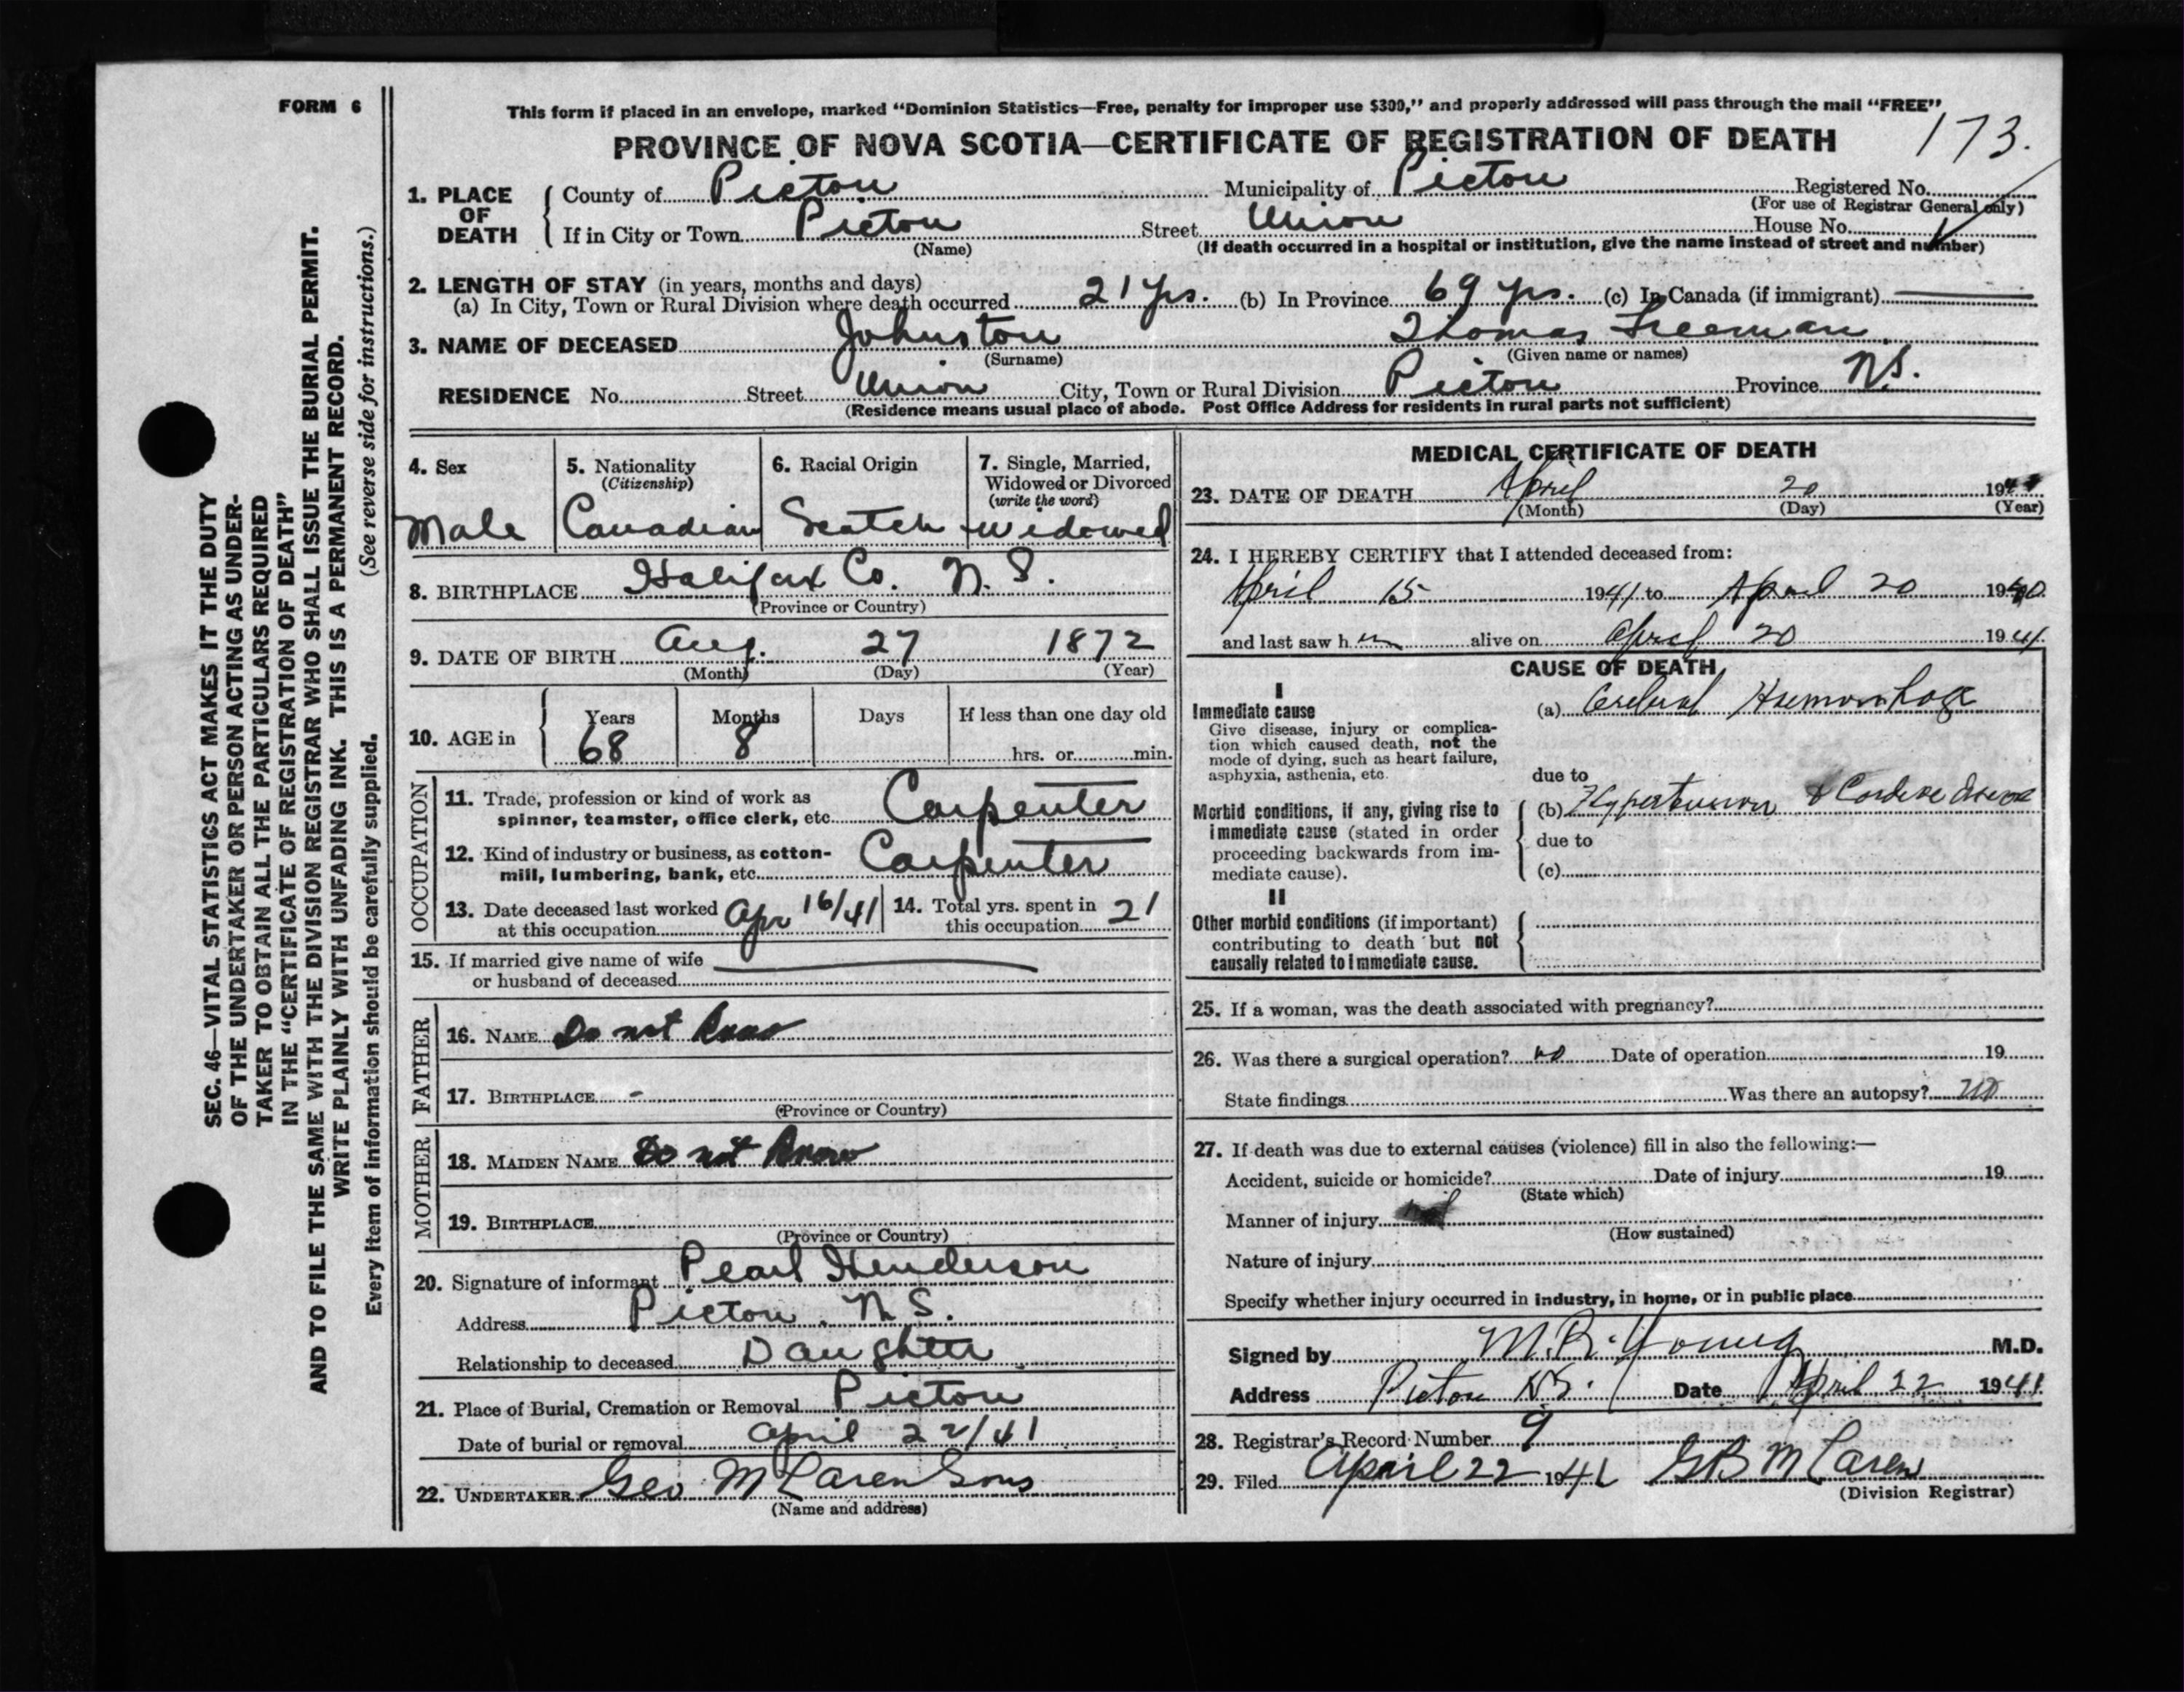 FORM 6
This form if placed in an envelope, marked "Dominion Statistics—Free, penalty for improper use $300," and properly addressed will pass through the mail "FREE"
PROVINCE OF NOVA SCOTIA—CERTIFICATE OF REGISTRATION OF DEATH
173.
1. PLACE OF DEATH
County of Pictou Municipality of Pictou Registered No.
(For use of Registrar General only)
If in City or Town Pictou Street Union House No.
(Name) (If death occurred in a hospital or institution, give the name instead of street and number)
2. LENGTH OF STAY (in years, months and days)
(a) In City, Town or Rural Division where death occurred 21 yrs. (b) In Province 69 yrs. (c) In Canada (if immigrant)
3. NAME OF DECEASED Johnston Thomas Freeman
(Surname) (Given name or names)
RESIDENCE No. Street Union City, Town or Rural Division Pictou Province N.S.
(Residence means usual place of abode. Post Office Address for residents in rural parts not sufficient)
4. Sex
Male
5. Nationality
(Citizenship)
Canadian
6. Racial Origin
Scotch
7. Single, Married,
Widowed or Divorced
(write the word)
Widowed
8. BIRTHPLACE Halifax Co. N.S.
(Province or Country)
9. DATE OF BIRTH Aug. 27 1872
(Month) (Day) (Year)
10. AGE in
Years Months Days If less than one day old
68 8 hrs. or min.
OCCUPATION
11. Trade, profession or kind of work as
spinner, teamster, office clerk, etc. Carpenter
12. Kind of industry or business, as cotton-
mill, lumbering, bank, etc. Carpenter
13. Date deceased last worked
at this occupation Apr 16/41
14. Total yrs. spent in
this occupation 21
15. If married give name of wife
or husband of deceased
FATHER
16. NAME Do not Know
17. BIRTHPLACE -
(Province or Country)
MOTHER
18. MAIDEN NAME Do not Know
19. BIRTHPLACE
(Province or Country)
20. Signature of informant Pearl Henderson
Address Pictou. N.S.
Relationship to deceased Daughter
21. Place of Burial, Cremation or Removal Pictou
Date of burial or removal April 22/41
22. UNDERTAKER Geo McLaren Sons
(Name and address)
MEDICAL CERTIFICATE OF DEATH
23. DATE OF DEATH April 20 1941
(Month) (Day) (Year)
24. I HEREBY CERTIFY that I attended deceased from:
April 15 1941 to April 20 1940
and last saw him alive on April 20 1941
CAUSE OF DEATH
I
Immediate cause
Give disease, injury or complica-
tion which caused death, not the
mode of dying, such as heart failure,
asphyxia, asthenia, etc.
(a) Cerebral Haemorrhage
due to
Morbid conditions, if any, giving rise to
immediate cause (stated in order
proceeding backwards from im-
mediate cause).
(b) Hypertension & Cardiac disease
due to
(c)
II
Other morbid conditions (if important)
contributing to death but not
causally related to immediate cause.
25. If a woman, was the death associated with pregnancy?
26. Was there a surgical operation? no Date of operation 19
State findings Was there an autopsy? no
27. If death was due to external causes (violence) fill in also the following:—
Accident, suicide or homicide? Date of injury 19
(State which)
Manner of injury
(How sustained)
Nature of injury
Specify whether injury occurred in industry, in home, or in public place
Signed by M.R. Young M.D.
Address Pictou N.S. Date April 22 1941
28. Registrar's Record Number 9
29. Filed April 22 1941 G B McLaren
(Division Registrar)
SEC. 46—VITAL STATISTICS ACT MAKES IT THE DUTY
OF THE UNDERTAKER OR PERSON ACTING AS UNDER-
TAKER TO OBTAIN ALL THE PARTICULARS REQUIRED
IN THE "CERTIFICATE OF REGISTRATION OF DEATH"
AND TO FILE THE SAME WITH THE DIVISION REGISTRAR WHO SHALL ISSUE THE BURIAL PERMIT.
WRITE PLAINLY WITH UNFADING INK. THIS IS A PERMANENT RECORD.
Every item of information should be carefully supplied. (See reverse side for instructions.)